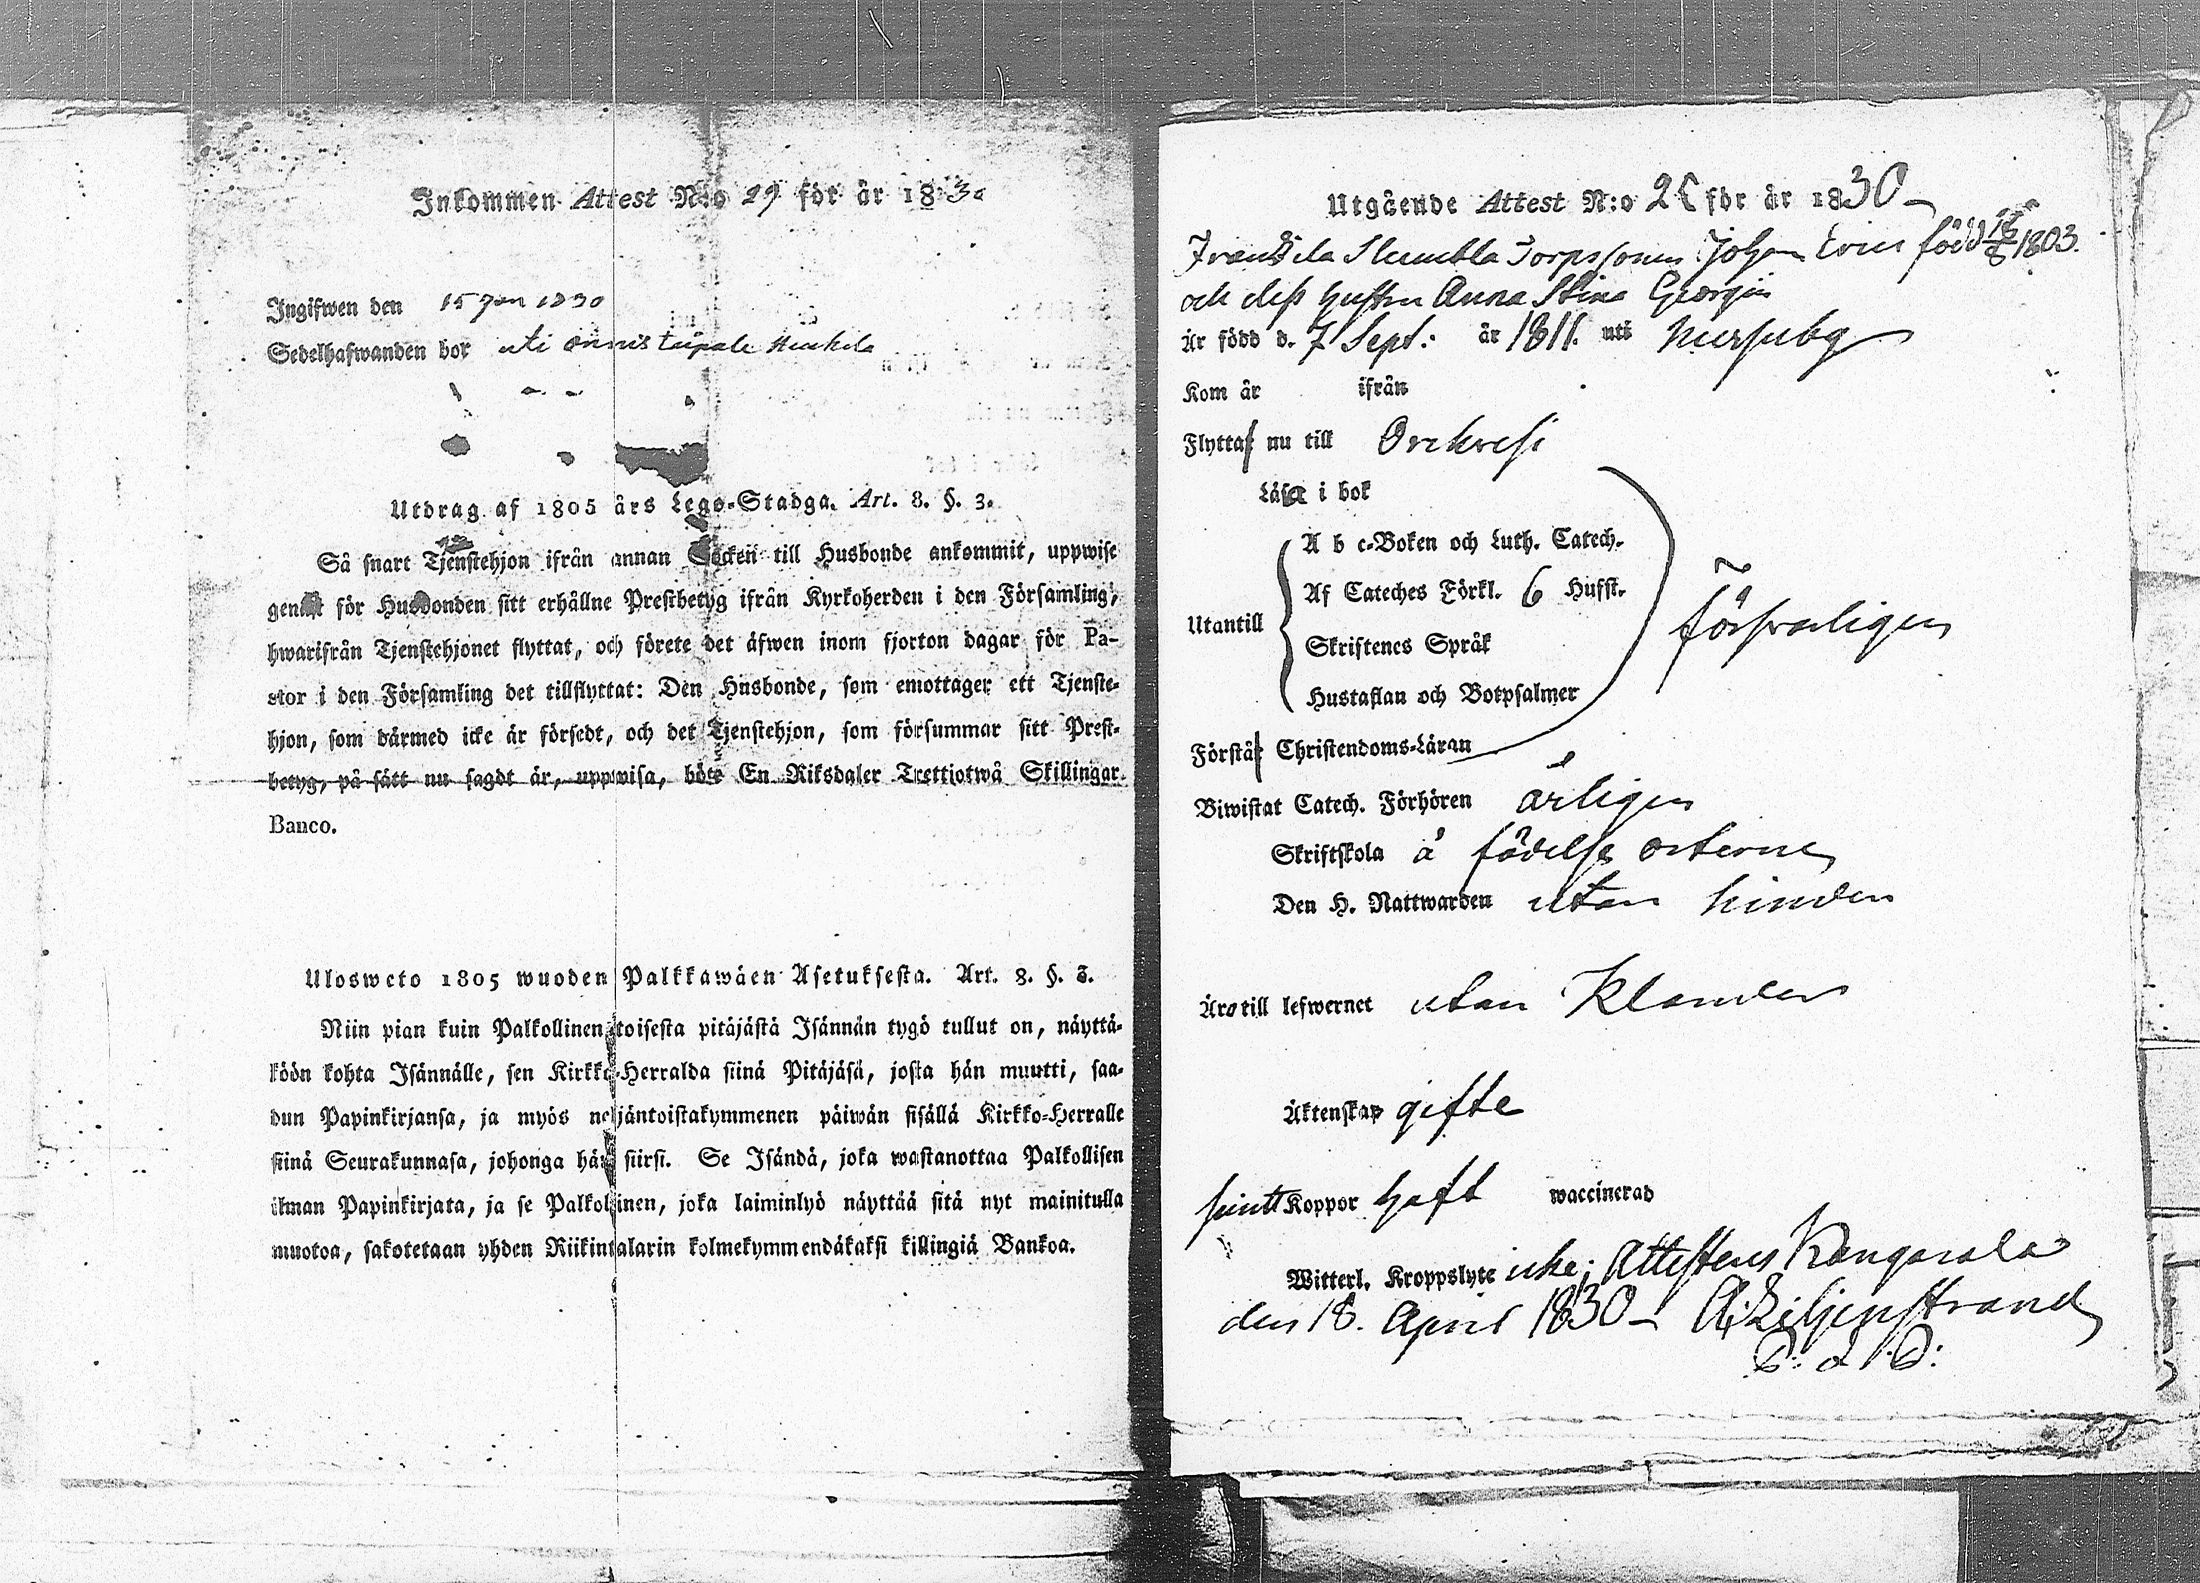 Inkommen Attest N:o 29 för år 1830
Ingifwen den 15 Jan 1830
Sedelhafwanden bor uti
Utdrag af 1805 års Lego-Stadga. Art. 8. §. 3.
Så snart Tjenstehjon ifrån annan Socken till Husbonde ankommit, uppwise
genast för Husbonden sitt erhållne Prestbetyg ifrån Kyrkoherden i den Församling,
hwarifrån Tjenstehjonet flyttat, och förete det äfwen inom fjorton dagar för Pa-
stor i den Församling det tillflyttat: Den Husbonde, som emottager ett Tjenste-
hjon, som därmed icke är försedt, och det Tjenstehjon, som försummar sitt Prest-
betyg, på sätt nu sagdt är, uppwisa, böte En Riksdaler Trettiotwå Skillingar
Banco.
Ulosweto 1805 wuoden Palkkawäen Asetuksesta. Art. 8. §. 3.
Niin pian kuin Palkollinen toisesta pitäjästä Isännän tygö tullut on, näyttä-
köön kohta Isännälle, sen Kirkko-Herralda siinä Pitäjäsä, josta hän muutti, saa-
dun Papinkirjansa, ja myös neljäntoistakymmenen päiwän sisällä Kirkko-Herralle
siinä Seurakunnasa, johonga hän siirsi. Se Isändä, joka wastanottaa Palkollisen
ilman Papinkirjata, ja se Palkollinen, joka laiminlyö näyttää sitä nyt mainitulla
muotoa, sakotetaan yhden Riikintalarin kolmekymmendäkaksi killingiä Bankoa.
Utgående Attest N:o för år 1830
Johan född 1803.
och dess hustru Anna Stina
Är född d. 7 Sept: år 1811. uti
Kom år ifrån
Flytta nu till
Läsa i bok
A b c-Boken och Luth. Catech.
Af Cateches Förkl. 6 Hufst.
Utantill
Skriftenes Språk
Hustaflan och Botpsalmer
försvarligen
Förstå Christendoms-Läran
Biwistat Catech. Förhören årligen
Skriftskola å födelse orterne
Den H. Nattwarden utan hinder
Äro till lefwernet utan Klander
Äktenskap gifte
Koppor haft waccinerad
Witterl. Kroppslyte icke; Attesteras Kangasala
den 18. April 1830 A. Liljenstrand